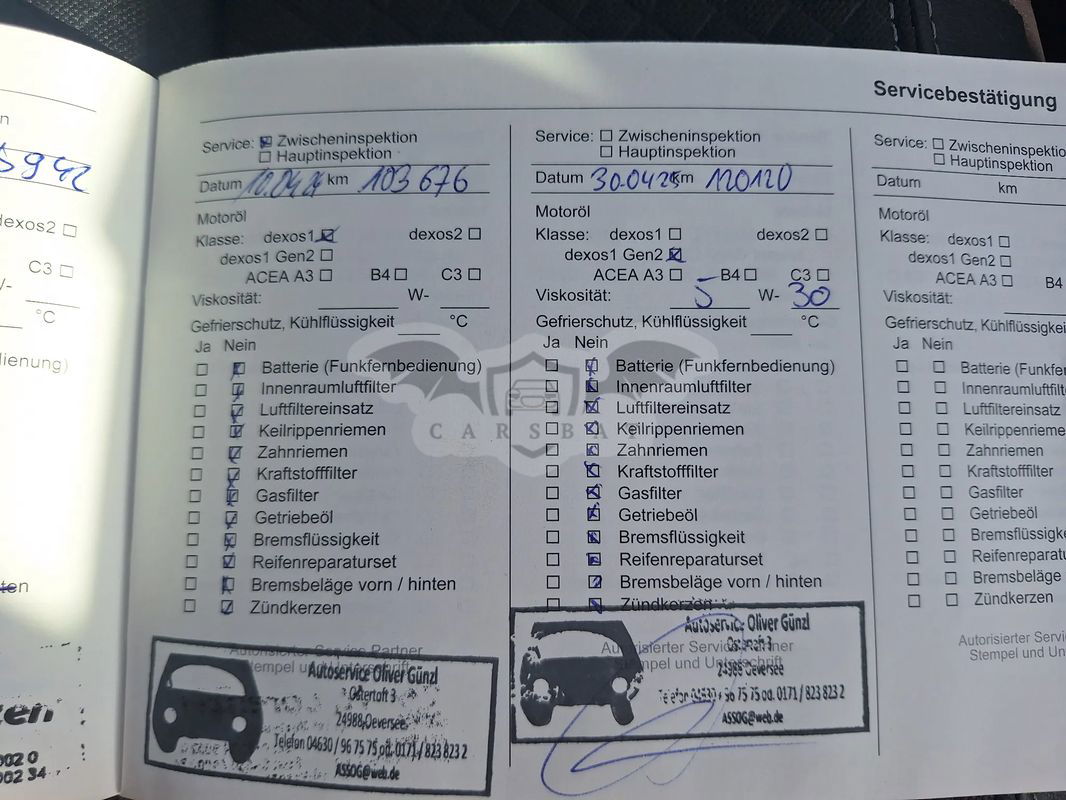 Servicebestätigung
Service: Zwischeninspektion
Hauptinspektion
Datum 10.04.24 km 103 676
Motoröl
Klasse: dexos1 dexos2
dexos1 Gen2
ACEA A3 B4 C3
Viskosität: W-
Gefrierschutz, Kühlflüssigkeit °C
Ja Nein
Batterie (Funkfernbedienung)
Innenraumluftfilter
Luftfiltereinsatz
Keilrippenriemen
Zahnriemen
Kraftstofffilter
Gasfilter
Getriebeöl
Bremsflüssigkeit
Reifenreparaturset
Bremsbeläge vorn / hinten
Zündkerzen
Autorisierter Service Partner
Stempel und Unterschrift
Autoservice Oliver Günzl
Ostertoft 3
24988 Oeversee
Telefon 04630 / 96 75 75 od. 0171 / 823 823 2
ASSOG@web.de
Service: Zwischeninspektion
Hauptinspektion
Datum 30.04.25 km 120120
Motoröl
Klasse: dexos1 dexos2
dexos1 Gen2
ACEA A3 B4 C3
Viskosität: 5 W- 30
Gefrierschutz, Kühlflüssigkeit °C
Ja Nein
Batterie (Funkfernbedienung)
Innenraumluftfilter
Luftfiltereinsatz
Keilrippenriemen
Zahnriemen
Kraftstofffilter
Gasfilter
Getriebeöl
Bremsflüssigkeit
Reifenreparaturset
Bremsbeläge vorn / hinten
Zündkerzen
Stempel und Unterschrift
Autoservice Oliver Günzl
24988 Oeversee
Telefon 04630 / 96 75 75 od. 0171 / 823 823 2
ASSOG@web.de
Service: Zwischeninspektio
Hauptinspektion
Datum km
Motoröl
Klasse: dexos1
dexos1 Gen2
ACEA A3 B4
Viskosität:
Gefrierschutz, Kühlflüssigkei
Ja Nein
Batterie (Funkfer
Innenraumluftfilt
Luftfiltereinsatz
Keilrippenrieme
Zahnriemen
Kraftstofffilter
Gasfilter
Getriebeöl
Bremsflüssigke
Reifenreparatu
Bremsbeläge
Zündkerzen
Autorisierter Servic
Stempel und Unte
dexos2
C3
°C
dienung)
CARSBAT